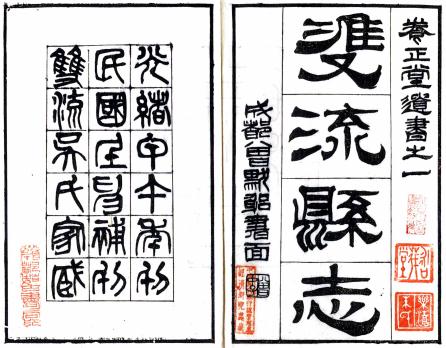 養正堂遺書之一
雙流縣志
成都曾默躬書面
光緒甲午年刊
民國壬申補刊
雙流吳氏家臧